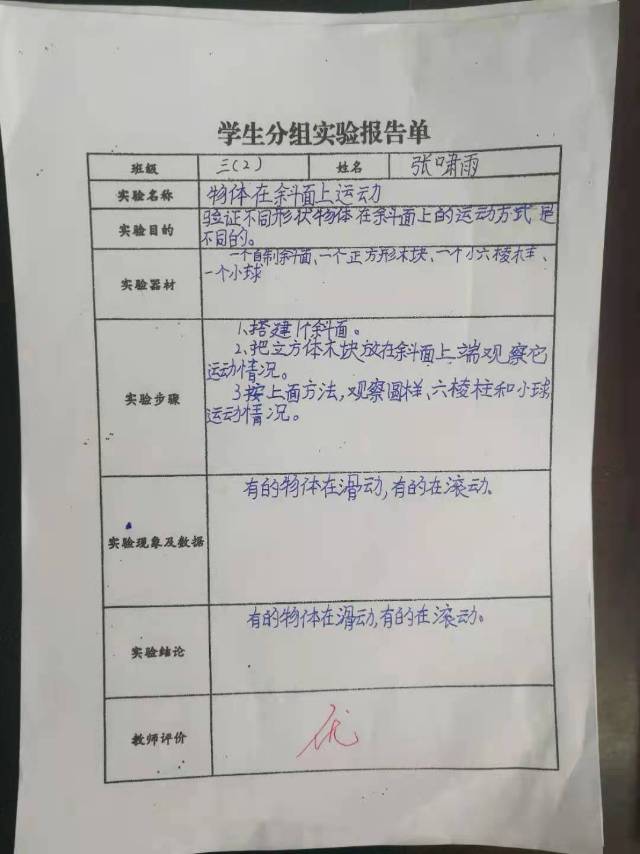 学生分组实验报告单
班级 三(2) 姓名 张啸雨
实验名称 物体在斜面上运动
实验目的 验证不同形状物体在斜面上的运动方式是
不同的。
实验器材 一个自制斜面、一个正方形木块、一个小六棱柱、
一个小球
实验步骤 1、搭建1个斜面。
2、把立方体木块放在斜面上端观察它
运动情况。
3按上面方法,观察圆样、六棱柱和小球
运动情况。
实验现象及数据 有的物体在滑动,有的在滚动.
实验结论 有的物体在滑动,有的在滚动。
教师评价 优